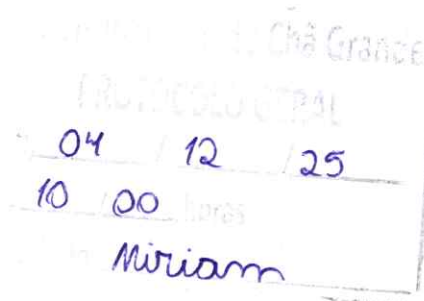 Chã Grande
PROTOCOLO GERAL
04 / 12 / 25
10 00 horas
Miriam